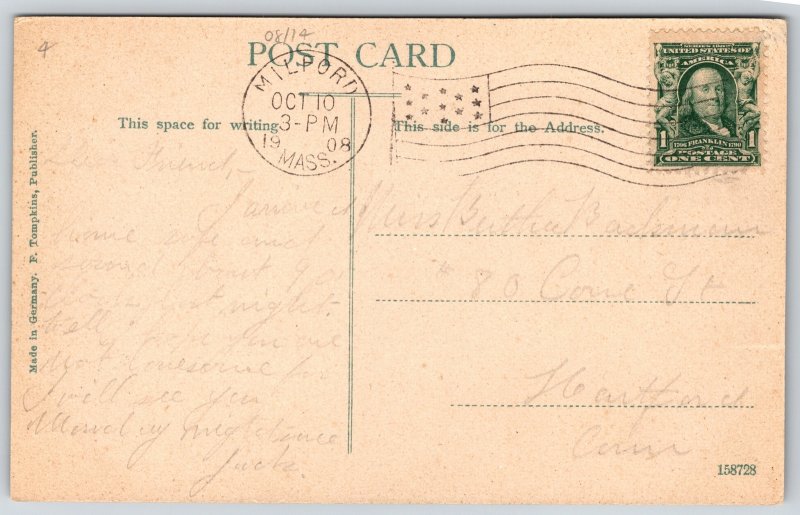 4
08/14
POST CARD
MILFORD
OCT 10
3-PM
19 08
MASS.
SERIES 1902
UNITED STATES OF
AMERICA
1 1
1706 FRANKLIN 1790
POSTAGE
ONE CENT
This space for writing
This side is for the Address.
Made in Germany. F. Tompkins, Publisher.
Friend,
I arrived
home safe and
sound about 9 o
last night.
hope you are
not lonesome for
I will see you
night
Jack
Miss Bertha Bachmann
# 80 Cone St
Hartford
Conn
158728